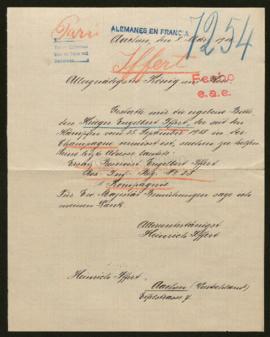 Paris
ALEMANES EN FRANCIA
7254
Aachen, den
Iffert
Allergnädigster König
Fecho
e.a.e.
Gestatte mir die ergebene Bitte
den Krieger Engelbert Iffert, der seit den
Kämpfen vom 25 September 1915 in der
Champagne vermisst ist, suchen zu lassen
Seine letzte Adresse lautete
Ersatz Reservist Engelbert Iffert
Res. Inf. Reg. № 28
Kompagnie
Für Ew. Majestät Bemühungen sage ich
meinen Dank
Alleruntertänigst
Heinrich Iffert
Heinrich Iffert
Aachen (Deutschland)